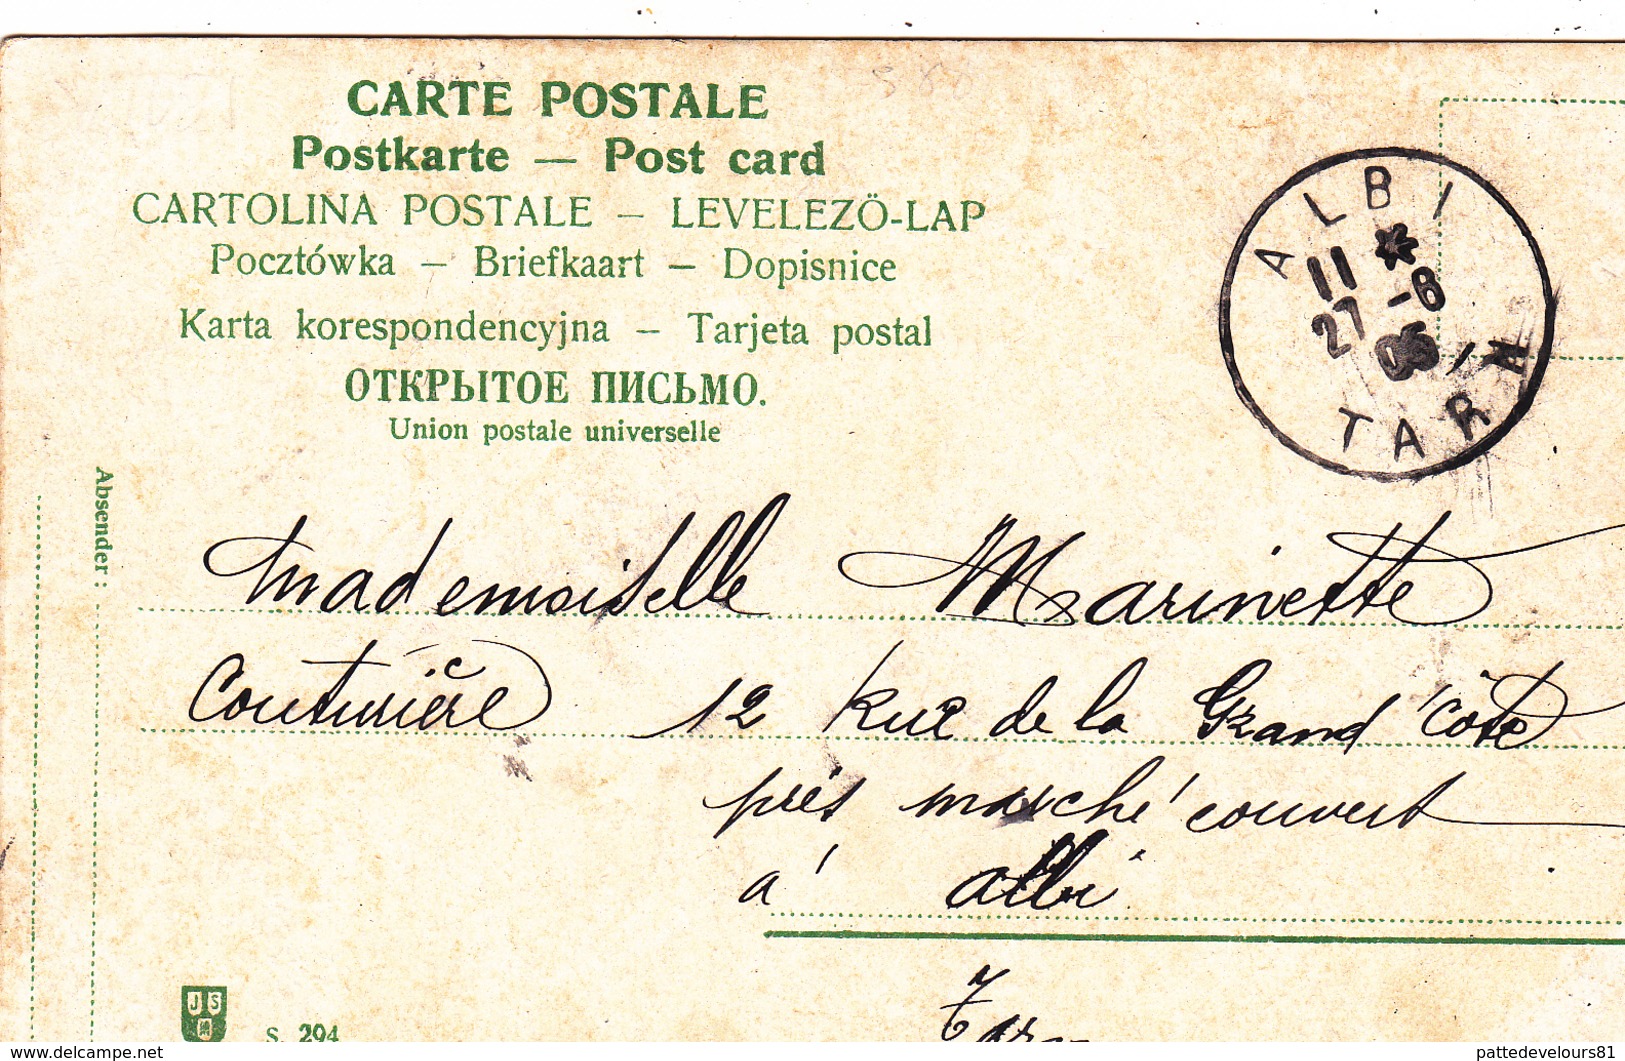 CARTE POSTALE
Postkarte — Post card
CARTOLINA POSTALE — LEVELEZÖ-LAP
Pocztówka — Briefkaart — Dopisnice
Karta korespondencyjna — Tarjeta postal
ОТКРЫТОЕ ПИСЬМО.
Union postale universelle
ALBI
11 *
27 -8
05
TARN
Absender:
Mademoiselle Marinette
Couturière 12 Rue de la Grand Côte
près marché couvert
à Albi
Tarn
JS
S. 294
www.delcampe.net
pattedevelours81